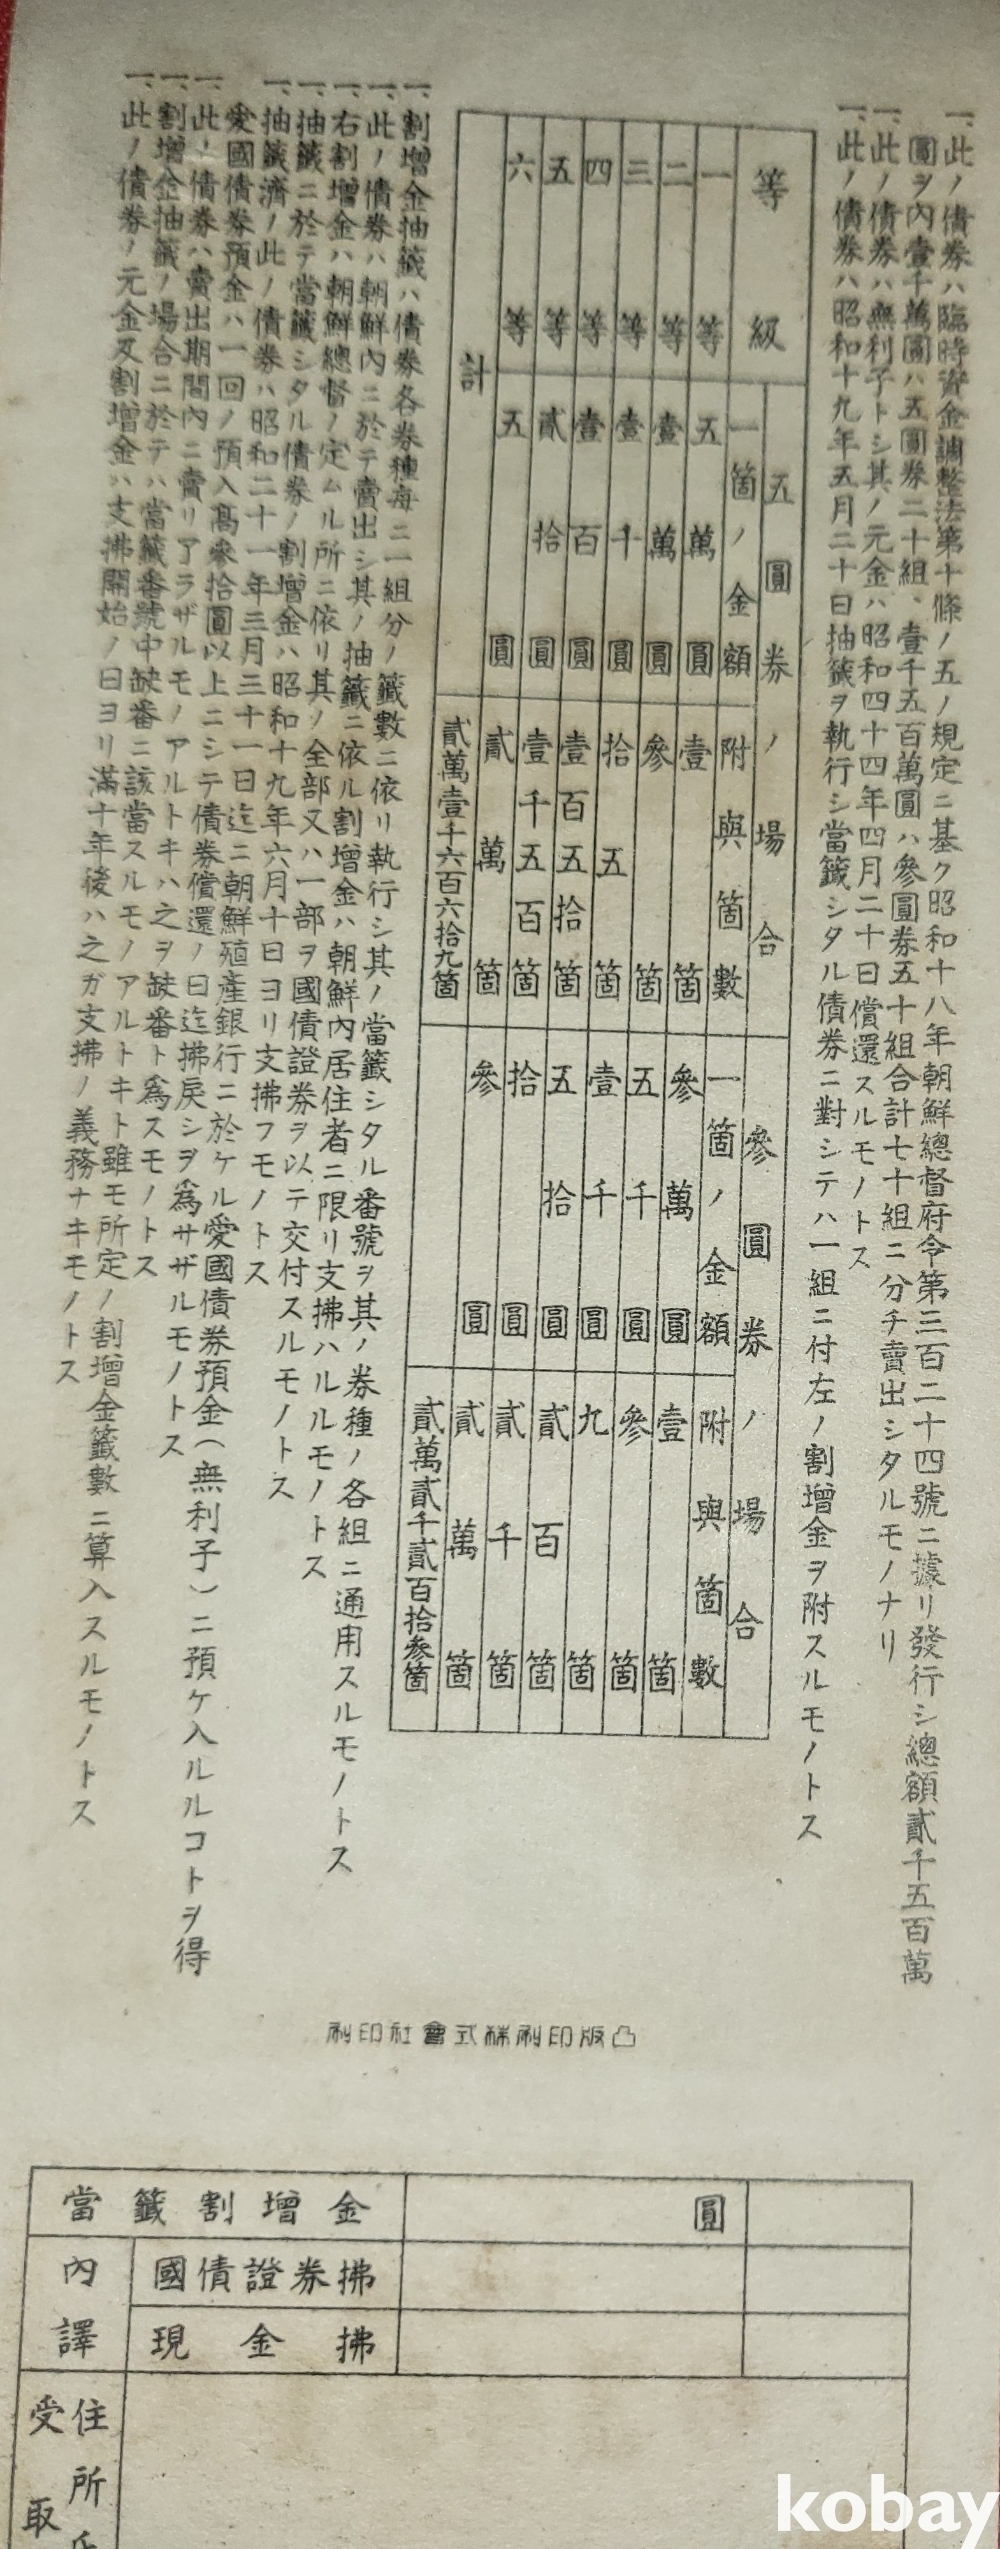 一、此ノ債券ハ臨時資金調整法第十條ノ五ノ規定ニ基ク昭和十八年朝鮮總督府令第三百二十四號ニ據リ發行シ總額貳千五百萬
圓ヲ內壹千萬圓ハ五圓券二十組、壹千五百萬圓ハ參圓券五十組合計七十組ニ分チ賣出シタルモノナリ
一、此ノ債券ハ無利子トシ其ノ元金ハ昭和四十四年四月二十日償還スルモノトス
一、此ノ債券ハ昭和十九年五月二十日抽籤ヲ執行シ當籤シタル債券ニ對シテハ一組ニ付左ノ割增金ヲ附スルモノトス
等級
五圓券ノ場合
參圓券ノ場合
一箇ノ金額
附與箇數
一箇ノ金額
附與箇數
一等 五萬圓 壹箇 參萬圓 壹箇
二等 壹萬圓 參箇 五千圓 參箇
三等 壹千圓 拾五箇 壹千圓 九箇
四等 壹百圓 壹百五拾箇 五拾圓 貳百箇
五等 貳拾圓 壹千五百箇 拾圓 貳千箇
六等 五圓 貳萬箇 參圓 貳萬箇
計 貳萬壹千六百六拾九箇 貳萬貳千貳百拾參箇
一、割增金抽籤ハ債券各券種每ニ一組分ノ籤數ニ依リ執行シ其ノ當籤シタル番號ヲ其ノ券種ノ各組ニ通用スルモノトス
一、此ノ債券ハ朝鮮內ニ於テ賣出シ其ノ抽籤ニ依ル割增金ハ朝鮮內居住者ニ限リ支拂ハルルモノトス
一、右割增金ハ朝鮮總督ノ定ムル所ニ依リ其ノ全部又ハ一部ヲ國債證券ヲ以テ交付スルモノトス
一、抽籤ニ於テ當籤シタル債券ノ割增金ハ昭和十九年六月十日ヨリ支拂フモノトス
一、抽籤濟ノ此ノ債券ハ昭和二十一年三月三十一日迄ニ朝鮮殖產銀行ニ於ケル愛國債券預金(無利子)ニ預ケ入ルルコトヲ得
愛國債券預金ハ一回ノ預入高參拾圓以上ニシテ債券償還ノ日迄拂戾シヲ爲サザルモノトス
一、此ノ債券ハ賣出期間內ニ賣リアラザルモノアルトキハ之ヲ缺番ト爲スモノトス
一、割增金抽籤ノ場合ニ於テハ當籤番號中缺番ニ該當スルモノアルトキト雖モ所定ノ割增金籤數ニ算入スルモノトス
一、此ノ債券ノ元金及割增金ハ支拂開始ノ日ヨリ滿十年後ハ之ガ支拂ノ義務ナキモノトス
凸版印刷株式會社印刷
當籤割增金 圓
內譯
國債證券拂
現金拂
受取
住所
kobay